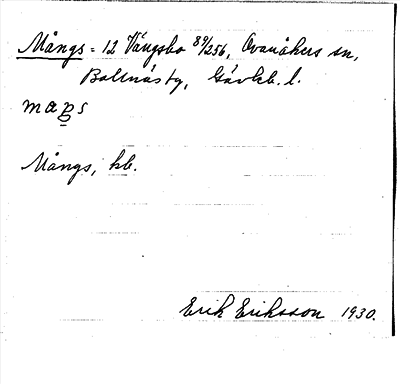 Mångs = 12 Vängsbo 89/256, Ovanåkers sn,
Bollnäs tg, Gävleb. l.
maŋs
Mångs, hb.
Erik Eriksson 1930.